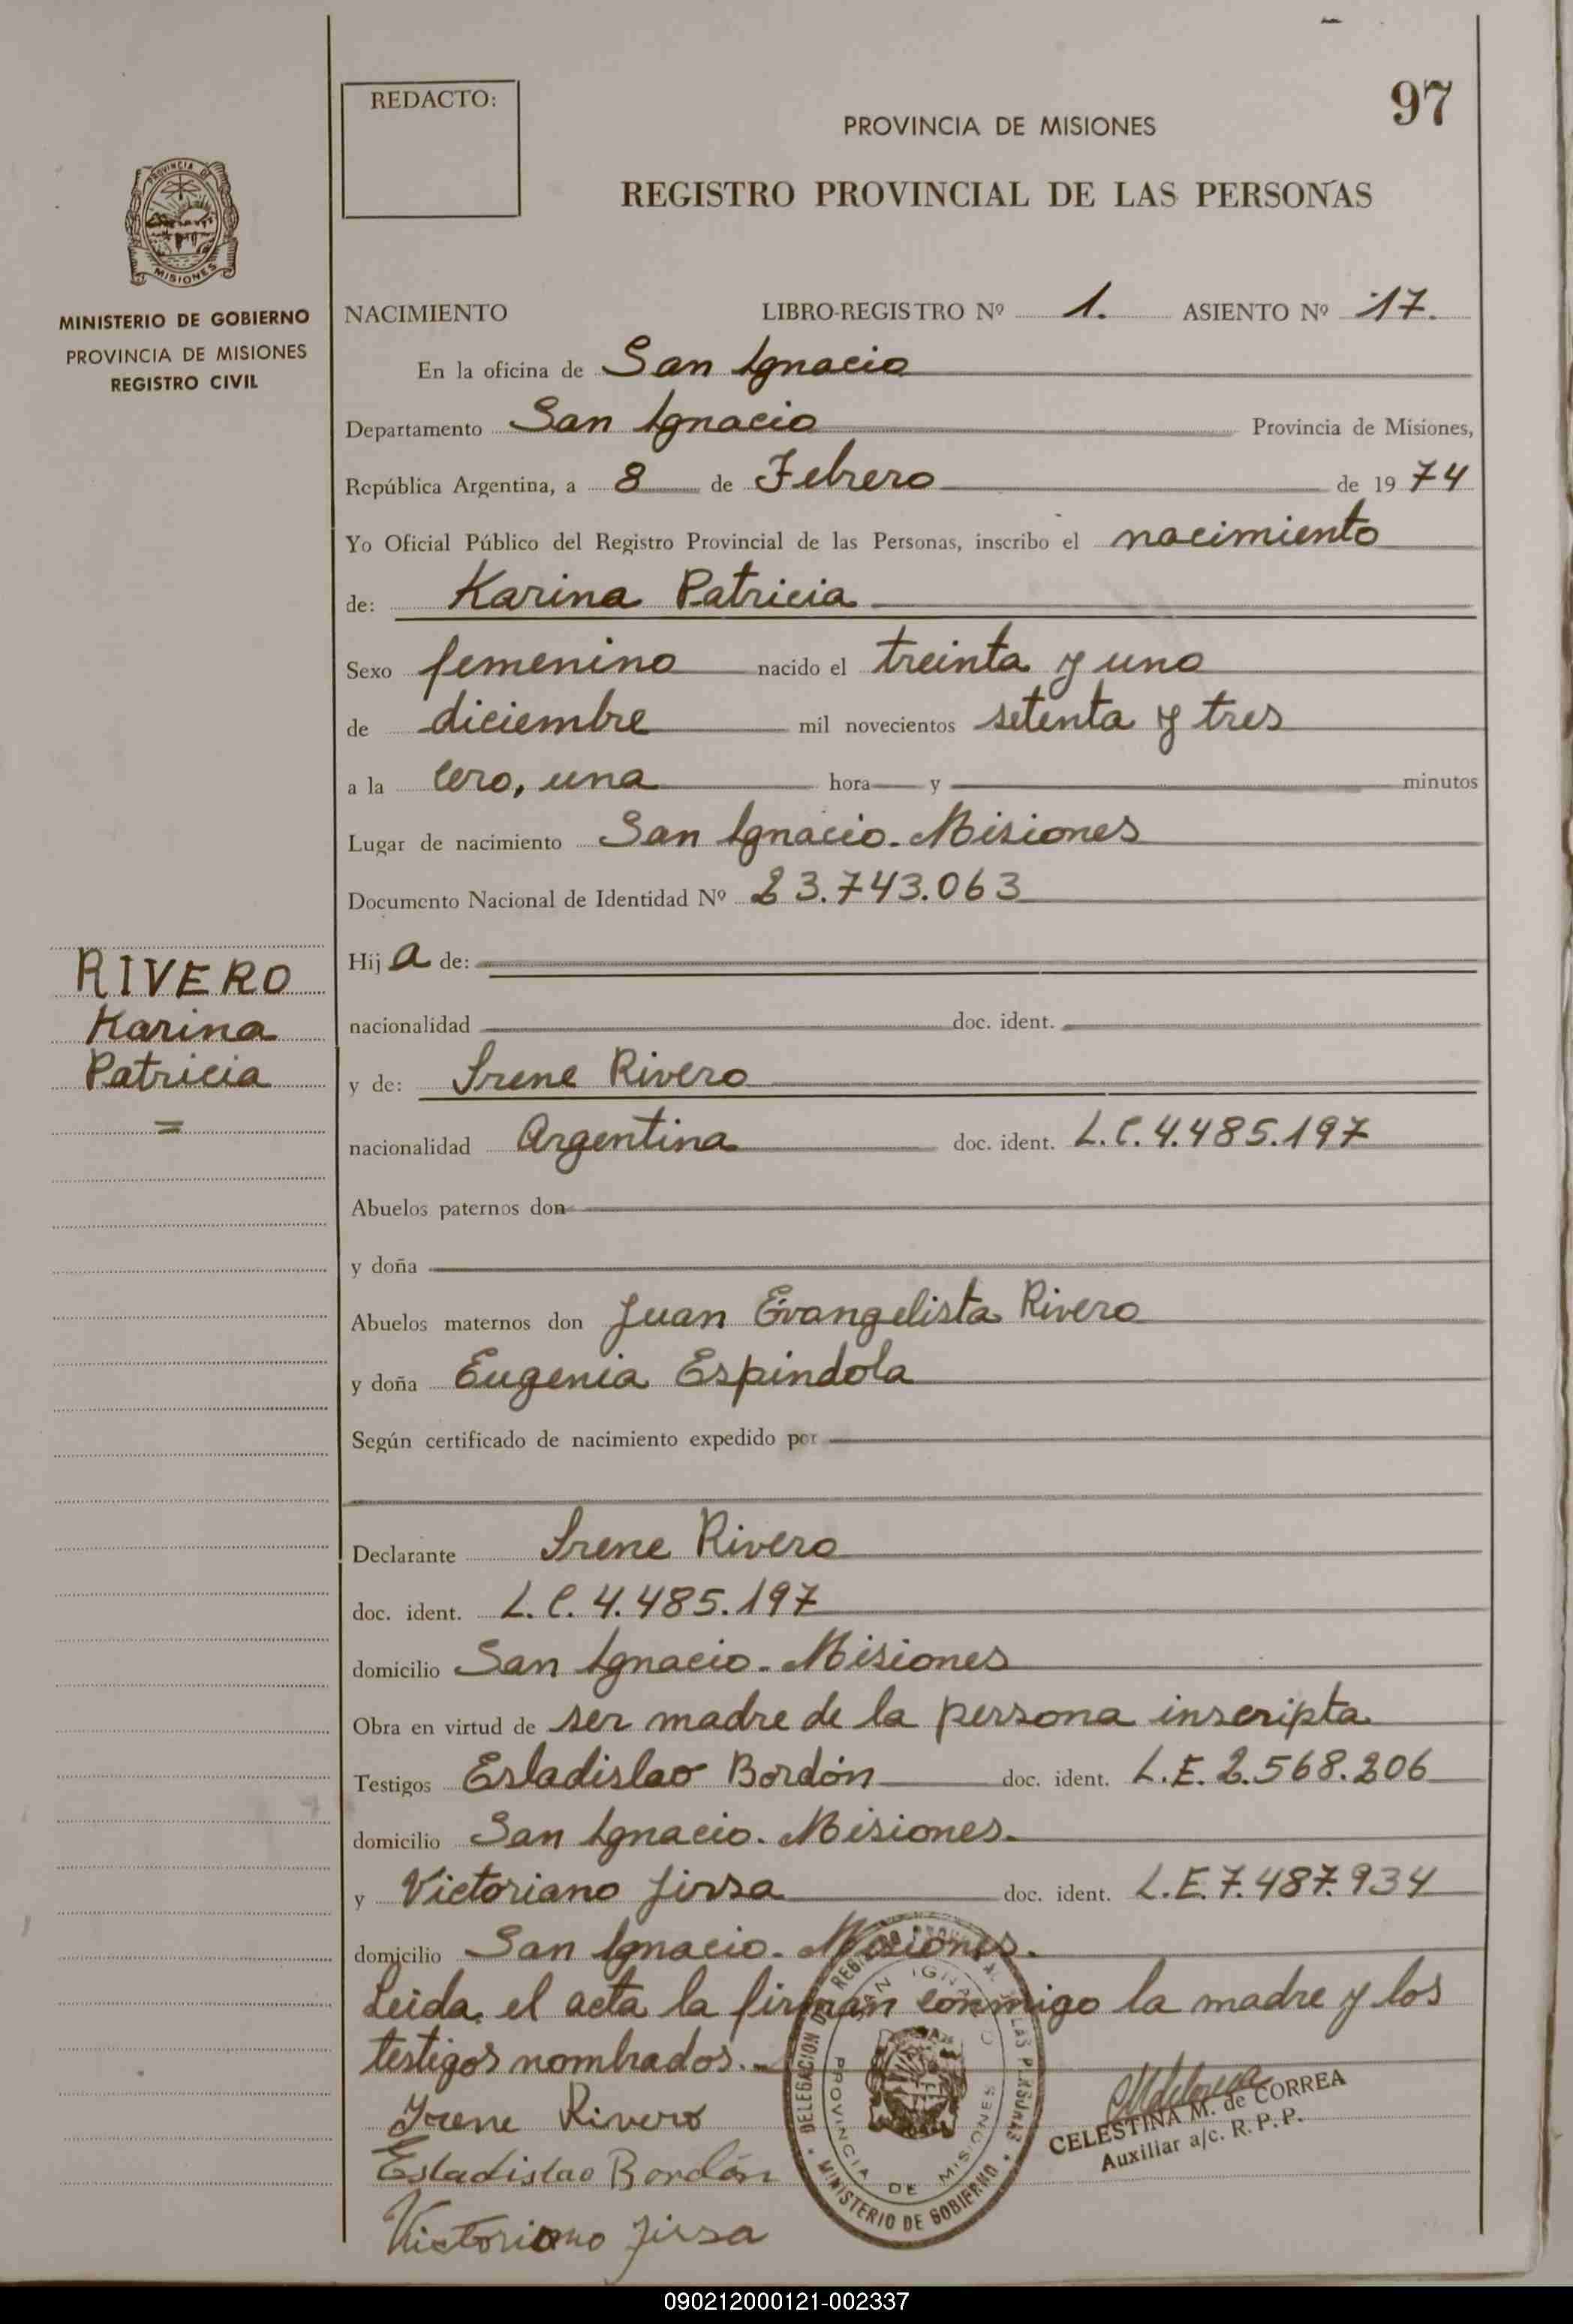 REDACTO:
97
PROVINCIA DE MISIONES
REGISTRO PROVINCIAL DE LAS PERSONAS
PROVINCIA DE
MISIONES
MINISTERIO DE GOBIERNO
PROVINCIA DE MISIONES
REGISTRO CIVIL
NACIMIENTO LIBRO-REGISTRO Nº 1. ASIENTO Nº 17.
En la oficina de San Ignacio
Departamento San Ignacio Provincia de Misiones,
República Argentina, a 8 de Febrero de 1974
Yo Oficial Público del Registro Provincial de las Personas, inscribo el nacimiento
de: Karina Patricia
Sexo femenino nacido el treinta y uno
de diciembre mil novecientos setenta y tres
a la cero, una hora y minutos
Lugar de nacimiento San Ignacio. Misiones
Documento Nacional de Identidad Nº 23.743.063
RIVERO
Karina
Patricia
=
Hija de:
nacionalidad doc. ident.
y de: Irene Rivero
nacionalidad Argentina doc. ident. L.C. 4.485.197
Abuelos paternos don
y doña
Abuelos maternos don Juan Evangelista Rivero
y doña Eugenia Espindola
Según certificado de nacimiento expedido por
Declarante Irene Rivero
doc. ident. L.C. 4.485.197
domicilio San Ignacio. Misiones
Obra en virtud de ser madre de la persona inscripta
Testigos Esladislao Bordón doc. ident. L.E. 2.568.206
domicilio San Ignacio. Misiones.
y Victoriano Jirsa doc. ident. L.E. 7.487.934
domicilio San Ignacio. Misiones.
Leida el acta la firman conmigo la madre y los
testigos nombrados.-
Irene Rivero
Esladislao Bordón
Victoriano Jirsa
CELESTINA M. de CORREA
Auxiliar a/c. R. P. P.
DELEGACION DEL REGISTRO PROVINCIAL DE LAS PERSONAS
SAN IGNACIO
PROVINCIA DE MISIONES
MINISTERIO DE GOBIERNO
090212000121-002337